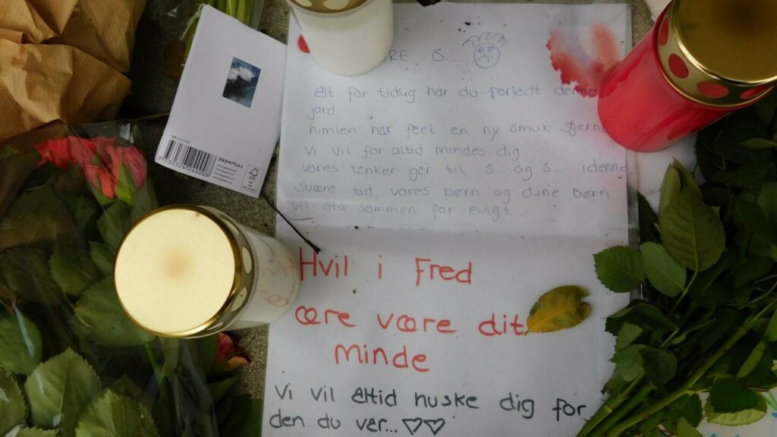 RE S..
Alt for tidlig har du forladt denne
jord
himlen har feet en ny smuk stjerne
vi vil for altid mindes dig
vores tanker går til S.. og S.. i denne
svære tid, vores børn og dine børn
vil stå sammen for evigt
Hvil i Fred
ære være dit
minde
Vi vil altid huske dig for
den du var...♡♡